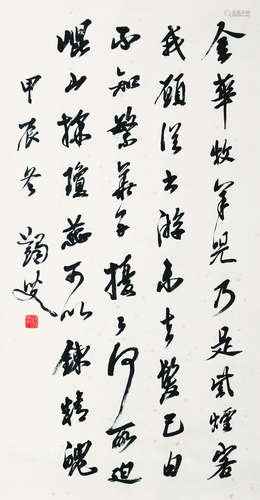 金華牧羊兒乃是紫煙客
我願從之游未去髮已白
不知繁華子擾々何所迫
崐山採瓊蕊可以鍊精魄
甲辰冬 叟